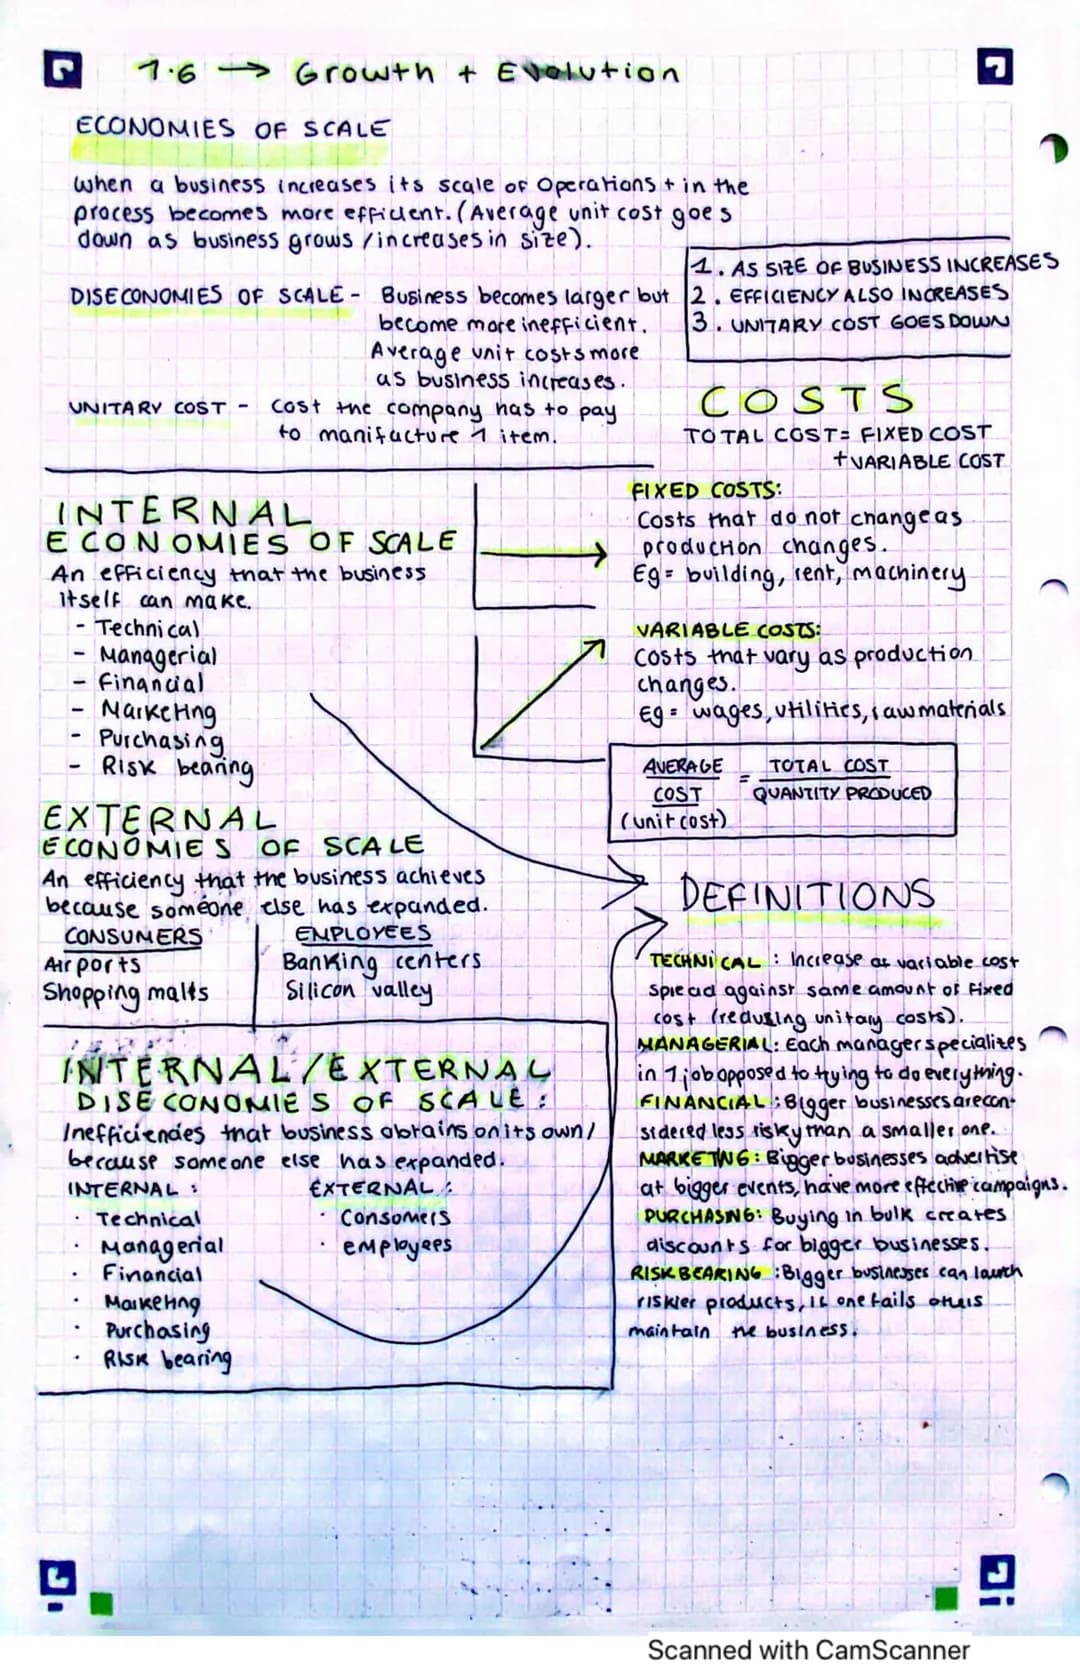 1.6 → Growth + Evolution
ECONOMIES OF SCALE
When a business increases its scale of operations + in the
process becomes more efficient. (Average unit cost goes
down as business grows / increases in size).
1. AS SIZE OF BUSINESS INCREASES
2. EFFICIENCY ALSO INCREASES
3. UNITARY COST GOES DOWN
DISECONOMIES OF SCALE - Business becomes larger but
become more inefficient.
Average unit costs more
as business increases.
UNITARY COST - cost the company has to pay
to manifacture 1 item.
COSTS
TOTAL COST = FIXED COST
+ VARIABLE COST
FIXED COSTS:
Costs that do not change as
production changes.
Eg = building, rent, machinery
VARIABLE COSTS:
Costs that vary as production
changes.
Eg = wages, utilities, raw materials
AVERAGE COST (unit cost) = TOTAL COST
QUANTITY PRODUCED
INTERNAL
ECONOMIES OF SCALE
An efficiency that the business
itself can make.
- Technical
- Managerial
- Financial
- Marketing
- Purchasing
- Risk bearing
EXTERNAL
ECONOMIES OF SCALE
An efficiency that the business achieves
because someone else has expanded.
CONSUMERS
Airports
Shopping malls
EMPLOYEES
Banking centers
Silicon valley
INTERNAL/EXTERNAL
DISECONOMIES OF SCALE:
Inefficiencies that business obtains on its own/
because someone else has expanded.
INTERNAL:
· Technical
· Managerial
· Financial
· Marketing
· Purchasing
· Risk bearing
EXTERNAL:
· Consomers
· employees
DEFINITIONS
TECHNICAL: Increase at variable cost
spread against same amount of fixed
cost (redusing unitary costs).
MANAGERIAL: Each manager specializes
in 1 job opposed to trying to do everything.
FINANCIAL: Bigger businesses are con-
sidered less risky than a smaller one.
MARKETNG: Bigger businesses advertise
at bigger events, have more effective campaigns.
PURCHASNG: Buying in bulk creates
discounts for bigger businesses.
RISK BEARING: Bigger businesses can lauch
riskier products, if one fails others
maintain the business.
Scanned with CamScanner